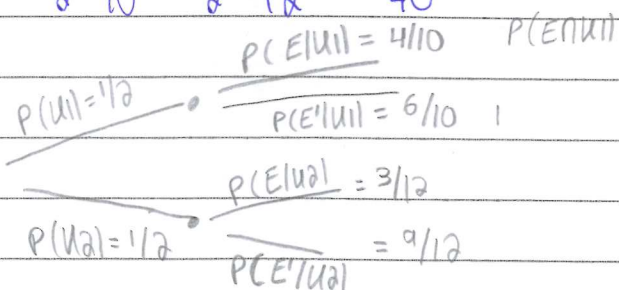 P(E|U1) = 4/10 P(E∩U1)
P(U1) = 1/2
P(E'|U1) = 6/10 1
P(E|U2) = 3/12
P(U2) = 1/2
= 9/12
P(E'|U2)